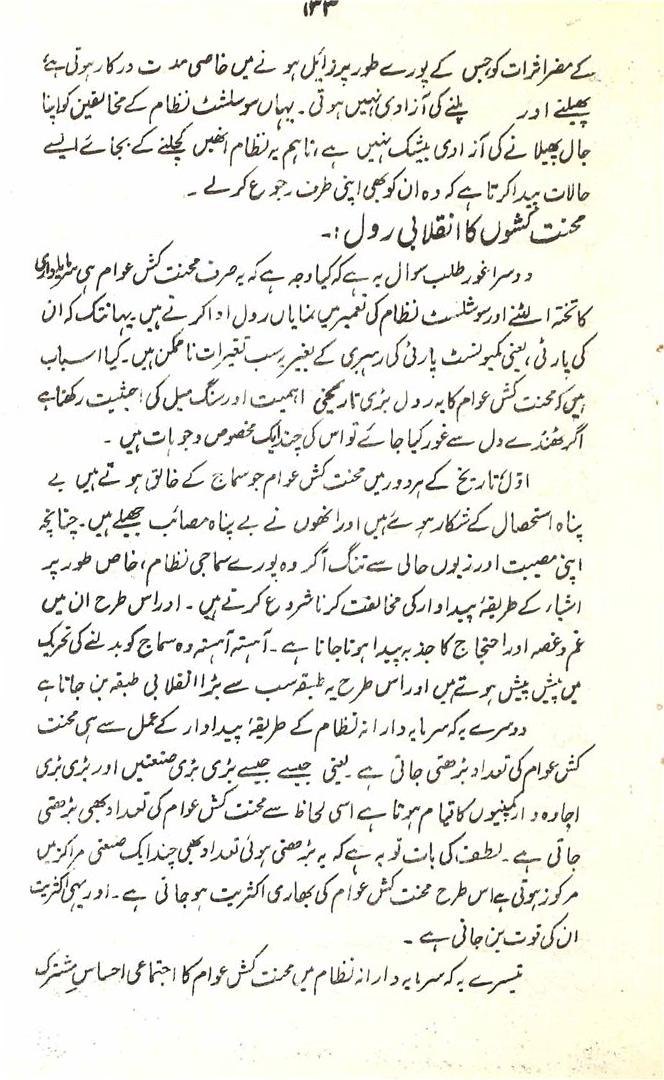 ۱۳۳
کے مضر اثرات کو جس کے پورے طور پر زائل ہونے میں خاصی مدت درکار ہوتی ہے،
پھیلنے اور پلنے کی آزادی نہیں ہوتی۔ یہاں سوسلسٹ نظام کے مخالفین کو اپنا
جال پھیلانے کی آزادی بیشک نہیں ہے، تاہم یہ نظام انھیں کچلنے کے بجائے ایسے
حالات پیدا کرتا ہے کہ وہ ان کو بھی اپنی طرف رجوع کر لے۔
محنت کشوں کا انقلابی رول :۔
دوسرا غور طلب سوال یہ ہے کہ کیا وجہ ہے کہ یہ صرف محنت کش عوام ہی سرمایہ داری
کا تختہ الٹنے اور سوشلسٹ نظام کی تعمیر میں نمایاں رول ادا کرتے ہیں۔ یہانتک کہ ان
کی پارٹی، یعنی کمیونسٹ پارٹی کی رہبری کے بغیر یہ سب تغیرات ناممکن ہیں۔ کیا اسباب
ہیں کہ محنت کش عوام کا یہ رول بڑی تاریخی اہمیت اور سنگ میل کی حیثیت رکھتا ہے
اگر ٹھنڈے دل سے غور کیا جائے تو اس کی چند ایک مخصوص وجوہات ہیں۔
اوّل تاریخ کے ہر دور میں محنت کش عوام جو سماج کے خالق ہوتے ہیں بے
پناہ استحصال کے شکار ہوئے ہیں اور انھوں نے بے پناہ مصائب جھیلے ہیں۔ چنانچہ
اپنی مصیبت اور زبوں حالی سے تنگ آ کر وہ پورے سماجی نظام، خاص طور پر
اشیاء کے طریقۂ پیداوار کی مخالفت کرنا شروع کرتے ہیں۔ اور اس طرح ان میں
غم و غصہ اور احتجاج کا جذبہ پیدا ہوتا جاتا ہے۔ آہستہ آہستہ وہ سماج کو بدلنے کی تحریک
میں پیش پیش ہوتے ہیں اور اس طرح یہ طبقہ سب سے بڑا انقلابی طبقہ بن جاتا ہے
دوسرے یہ کہ سرمایہ دارانہ نظام کے طریقۂ پیداوار کے عمل سے ہی محنت
کش عوام کی تعداد بڑھتی جاتی ہے۔ یعنی جیسے جیسے بڑی بڑی صنعتیں اور بڑی بڑی
اجارہ دار کمپنیوں کا قیام ہوتا ہے اسی لحاظ سے محنت کش عوام کی تعداد بھی بڑھتی
جاتی ہے۔ لطف کی بات تو یہ ہے کہ یہ بڑھتی ہوئی تعداد بھی چند ایک صنعتی مراکز میں
مرکوز ہوتی ہے اس طرح محنت کش عوام کی بھاری اکثریت ہو جاتی ہے۔ اور یہی اکثریت
ان کی قوت بن جاتی ہے۔
تیسرے یہ کہ سرمایہ دارانہ نظام میں محنت کش عوام کا اجتماعی احساسِ مشترک